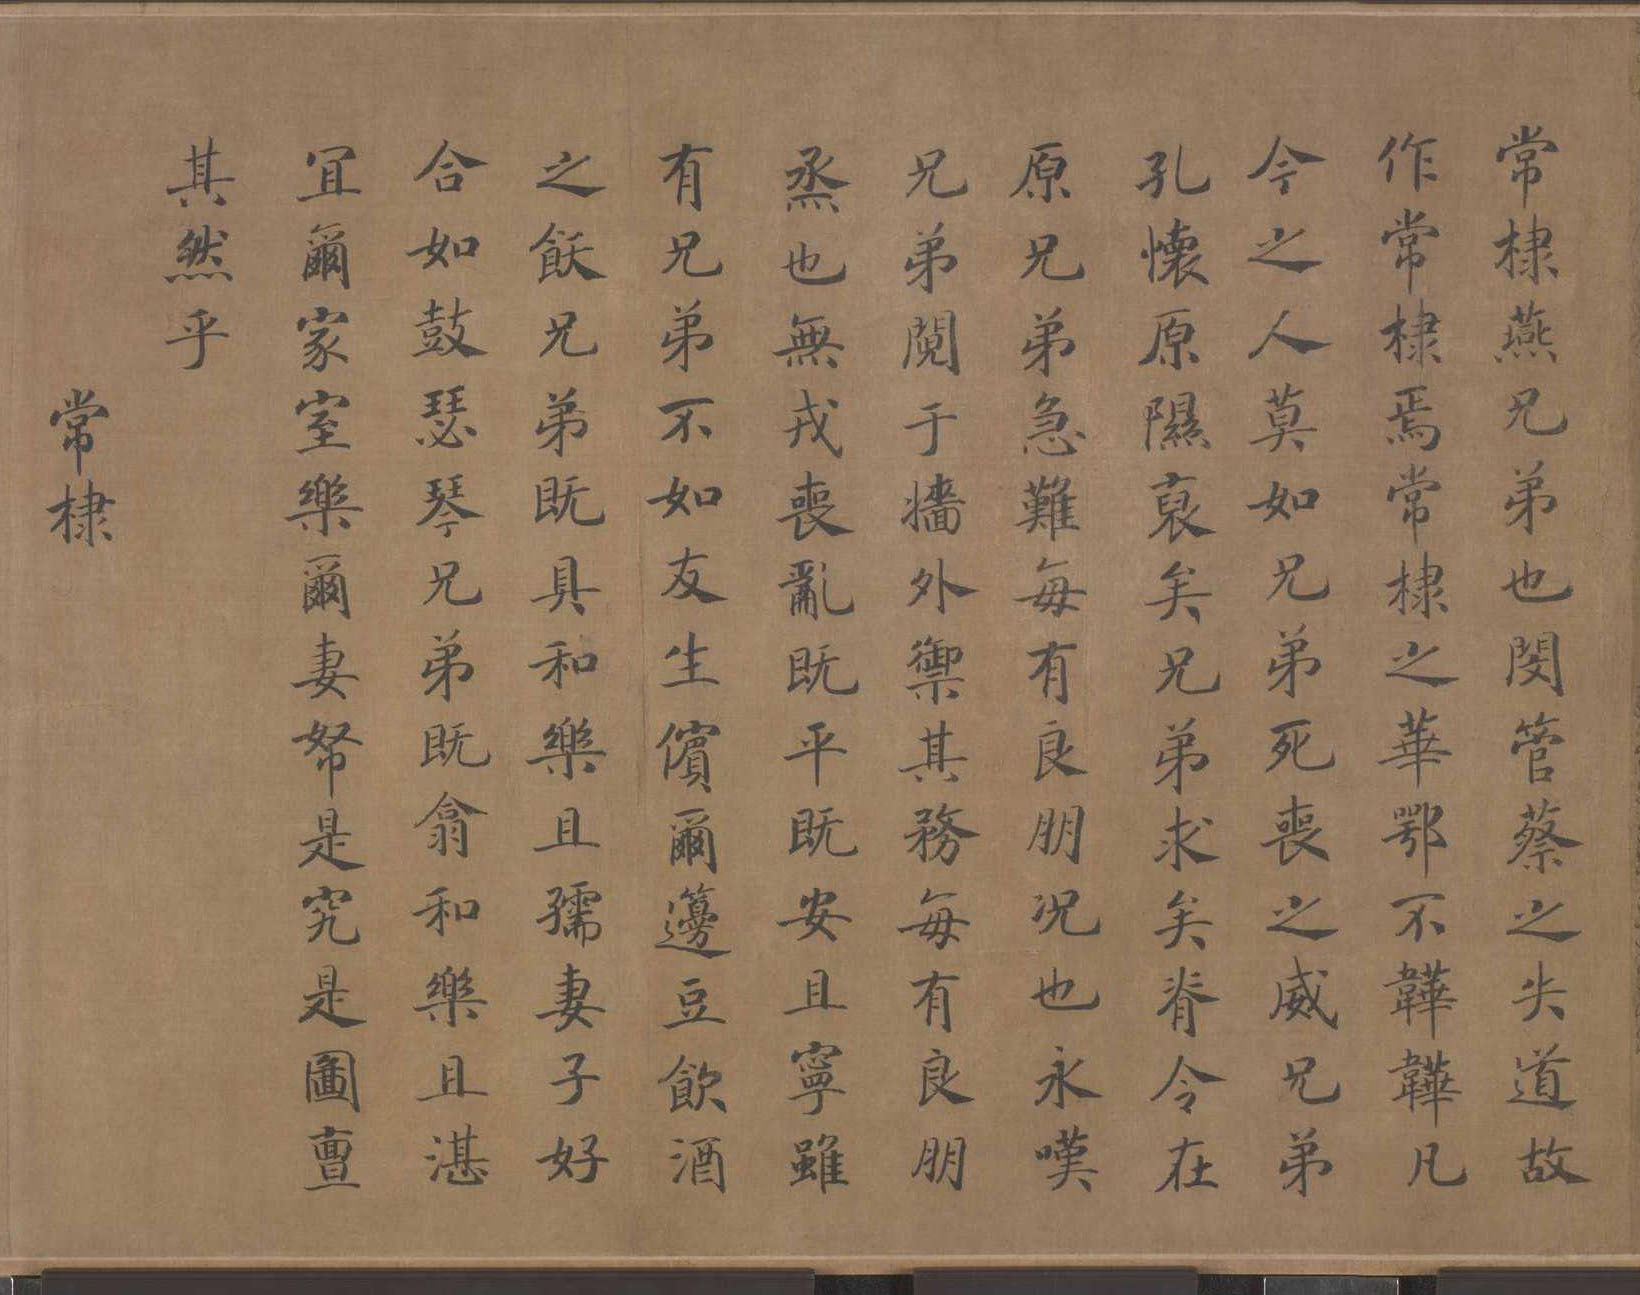 常棣燕兄弟也閔管蔡之失道故
作常棣焉常棣之華鄂不韡韡凡
今之人莫如兄弟死喪之威兄弟
孔懷原隰裒矣兄弟求矣脊令在
原兄弟急難每有良朋况也永嘆
兄弟閱于墻外禦其務每有良朋
烝也無戎喪亂既平既安且寧雖
有兄弟不如友生儐爾籩豆飲酒
之飫兄弟既具和樂且孺妻子好
合如鼓瑟琴兄弟既翕和樂且湛
宜爾家室樂爾妻帑是究是圖亶
其然乎
常棣